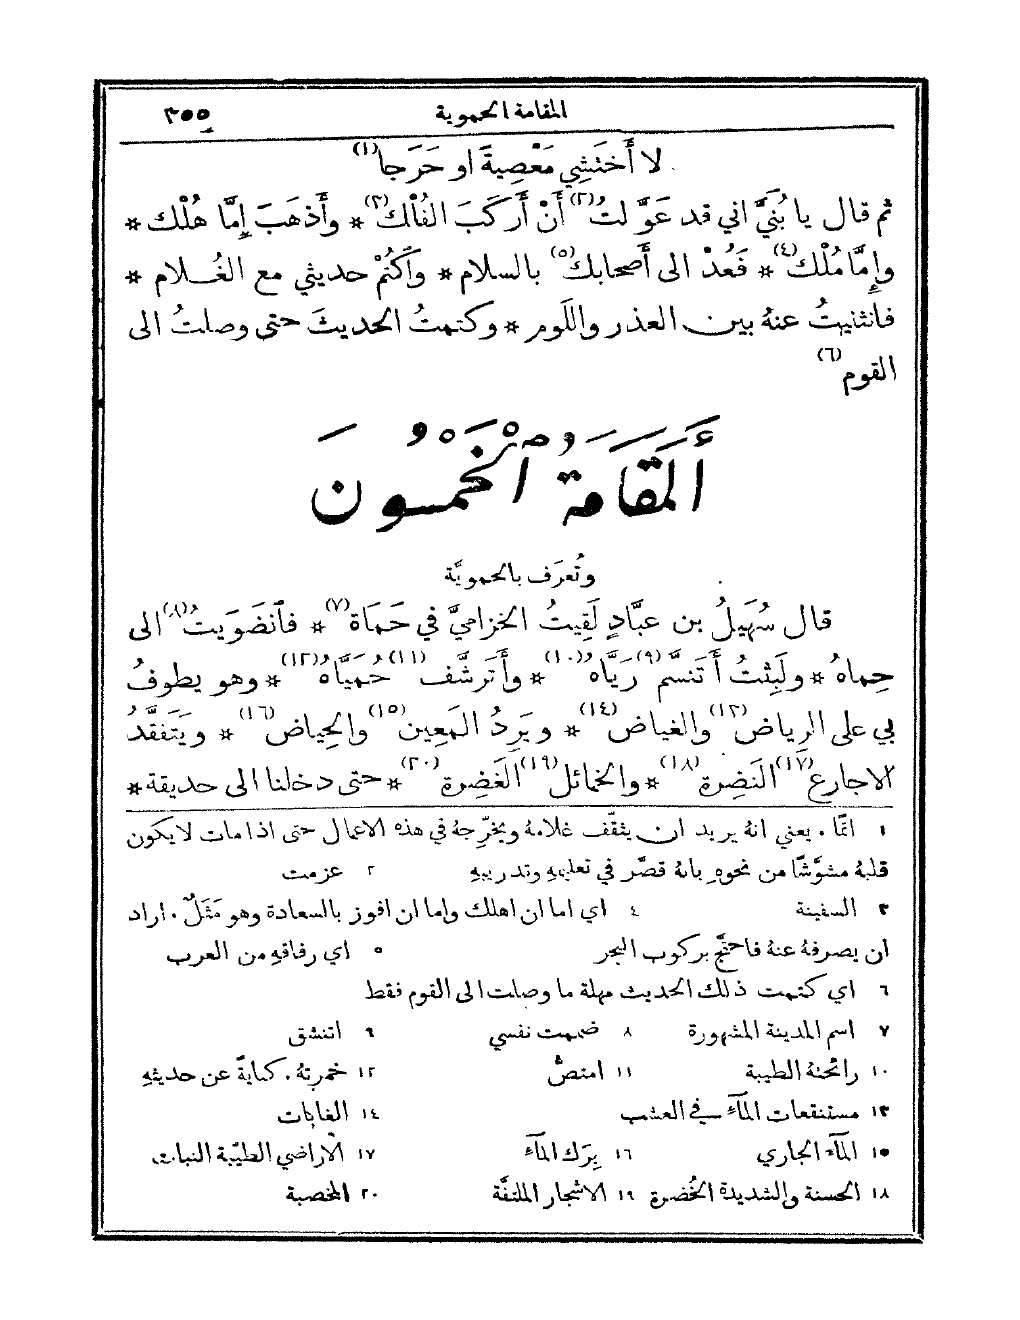 المقامة الحموية ٣٥٥
لا أَختَشِي مَعْصِيةً او حَرَجا(١)
ثم قال يا بُنَيَّ اني قد عَوَّلتُ(٢) أَنْ أَركَبَ الفُلْك(٣) * وأَذهَبَ إِمَّا هُلْك *
وإِمَّا مُلْك(٤) * فَعُدْ الى أَصحابك(٥) بالسلام * وٱكتُمْ حديثي مع الغُلام *
فانثنيتُ عنهُ بين العذر واللَوم * وكتمتُ الحديثَ حتى وصلتُ الى
القوم(٦)
أَلمَقَامَةُ ٱلْخَمْسُونَ
وتُعرَف بالحمويَّة
قال سُهَيلُ بن عبَّادٍ لَقِيتُ الخزاميَّ في حَمَاة(٧) * فٱنضَوَيتُ(٨) الى
حِماهُ * ولَبِثتُ أَتَنسَّم(٩) رَيَّاهُ(١٠) * وأَترشَّف(١١) حُمَيَّاهُ(١٢) * وهو يطوفُ
بي على الرياض(١٣) والغياض(١٤) * ويَرِدُ المَعِين(١٥) والحِياض(١٦) * ويَتَفقَّدُ
الاجارع(١٧) النَضِرة(١٨) * والخمائل(١٩) الغَضِرة(٢٠) * حتى دخلنا الى حديقة *
١ اثمًا. يعني انهُ يريد ان يثقّف غلامهُ ويخرّجهُ في هذه الاعمال حتى اذا مات لا يكون
قلبهُ مشوَّشًا من نحوهِ بانهُ قصَّر في تعليمهِ وتدريبهِ ٢ عزمت
٣ السفينة ٤ اي اما ان اهلك واما ان افوز بالسعادة وهو مَثَلٌ. اراد
ان يصرفهُ عنهُ فاحتجَّ بركوب البحر ٥ اي رفاقهِ من العرب
٦ اي كتمت ذلك الحديث مهلة ما وصلت الى القوم فقط
٧ اسم المدينة المشهورة ٨ ضممت نفسي ٩ اتنشق
١٠ رائحتهُ الطيبة ١١ امتصُّ ١٢ خمرتهُ. كنايةً عن حديثهِ
١٣ مستنقعات المآء في العشب ١٤ الغابات
١٥ المآء الجاري ١٦ بِرَك المآء ١٧ الاراضي الطيّبة النبات
١٨ الحسنة والشديدة الخُضرة ١٩ الاشجار الملتفَّة ٢٠ المخصبة